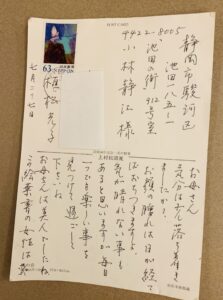 POST CARD
63
NIPPON
静岡市駿河区
池田一八五ー一
422-8005
池田の街 912号室
小林静江様
七月二十七日
植松光子
上村松園展
お母さん
気分は少し落ち着き
ましたか?
お顔の腫れは日が経て
ばおちつきますよ。
見が晴れない事も
あると思いますが毎日
一つでも楽しい事を
見つけて過ごして
下さいね。
お母さんは美人でしたね
この絵葉書の女性は